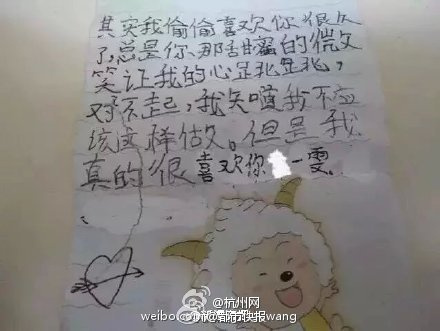 其实我偷偷喜欢你很久
了,总是你那甜蜜的微
笑让我的心
对不起,我知道我不应
该这样做。但是我
真的很喜欢你 一雯
@杭州网
weibo.com @都市快报 wang